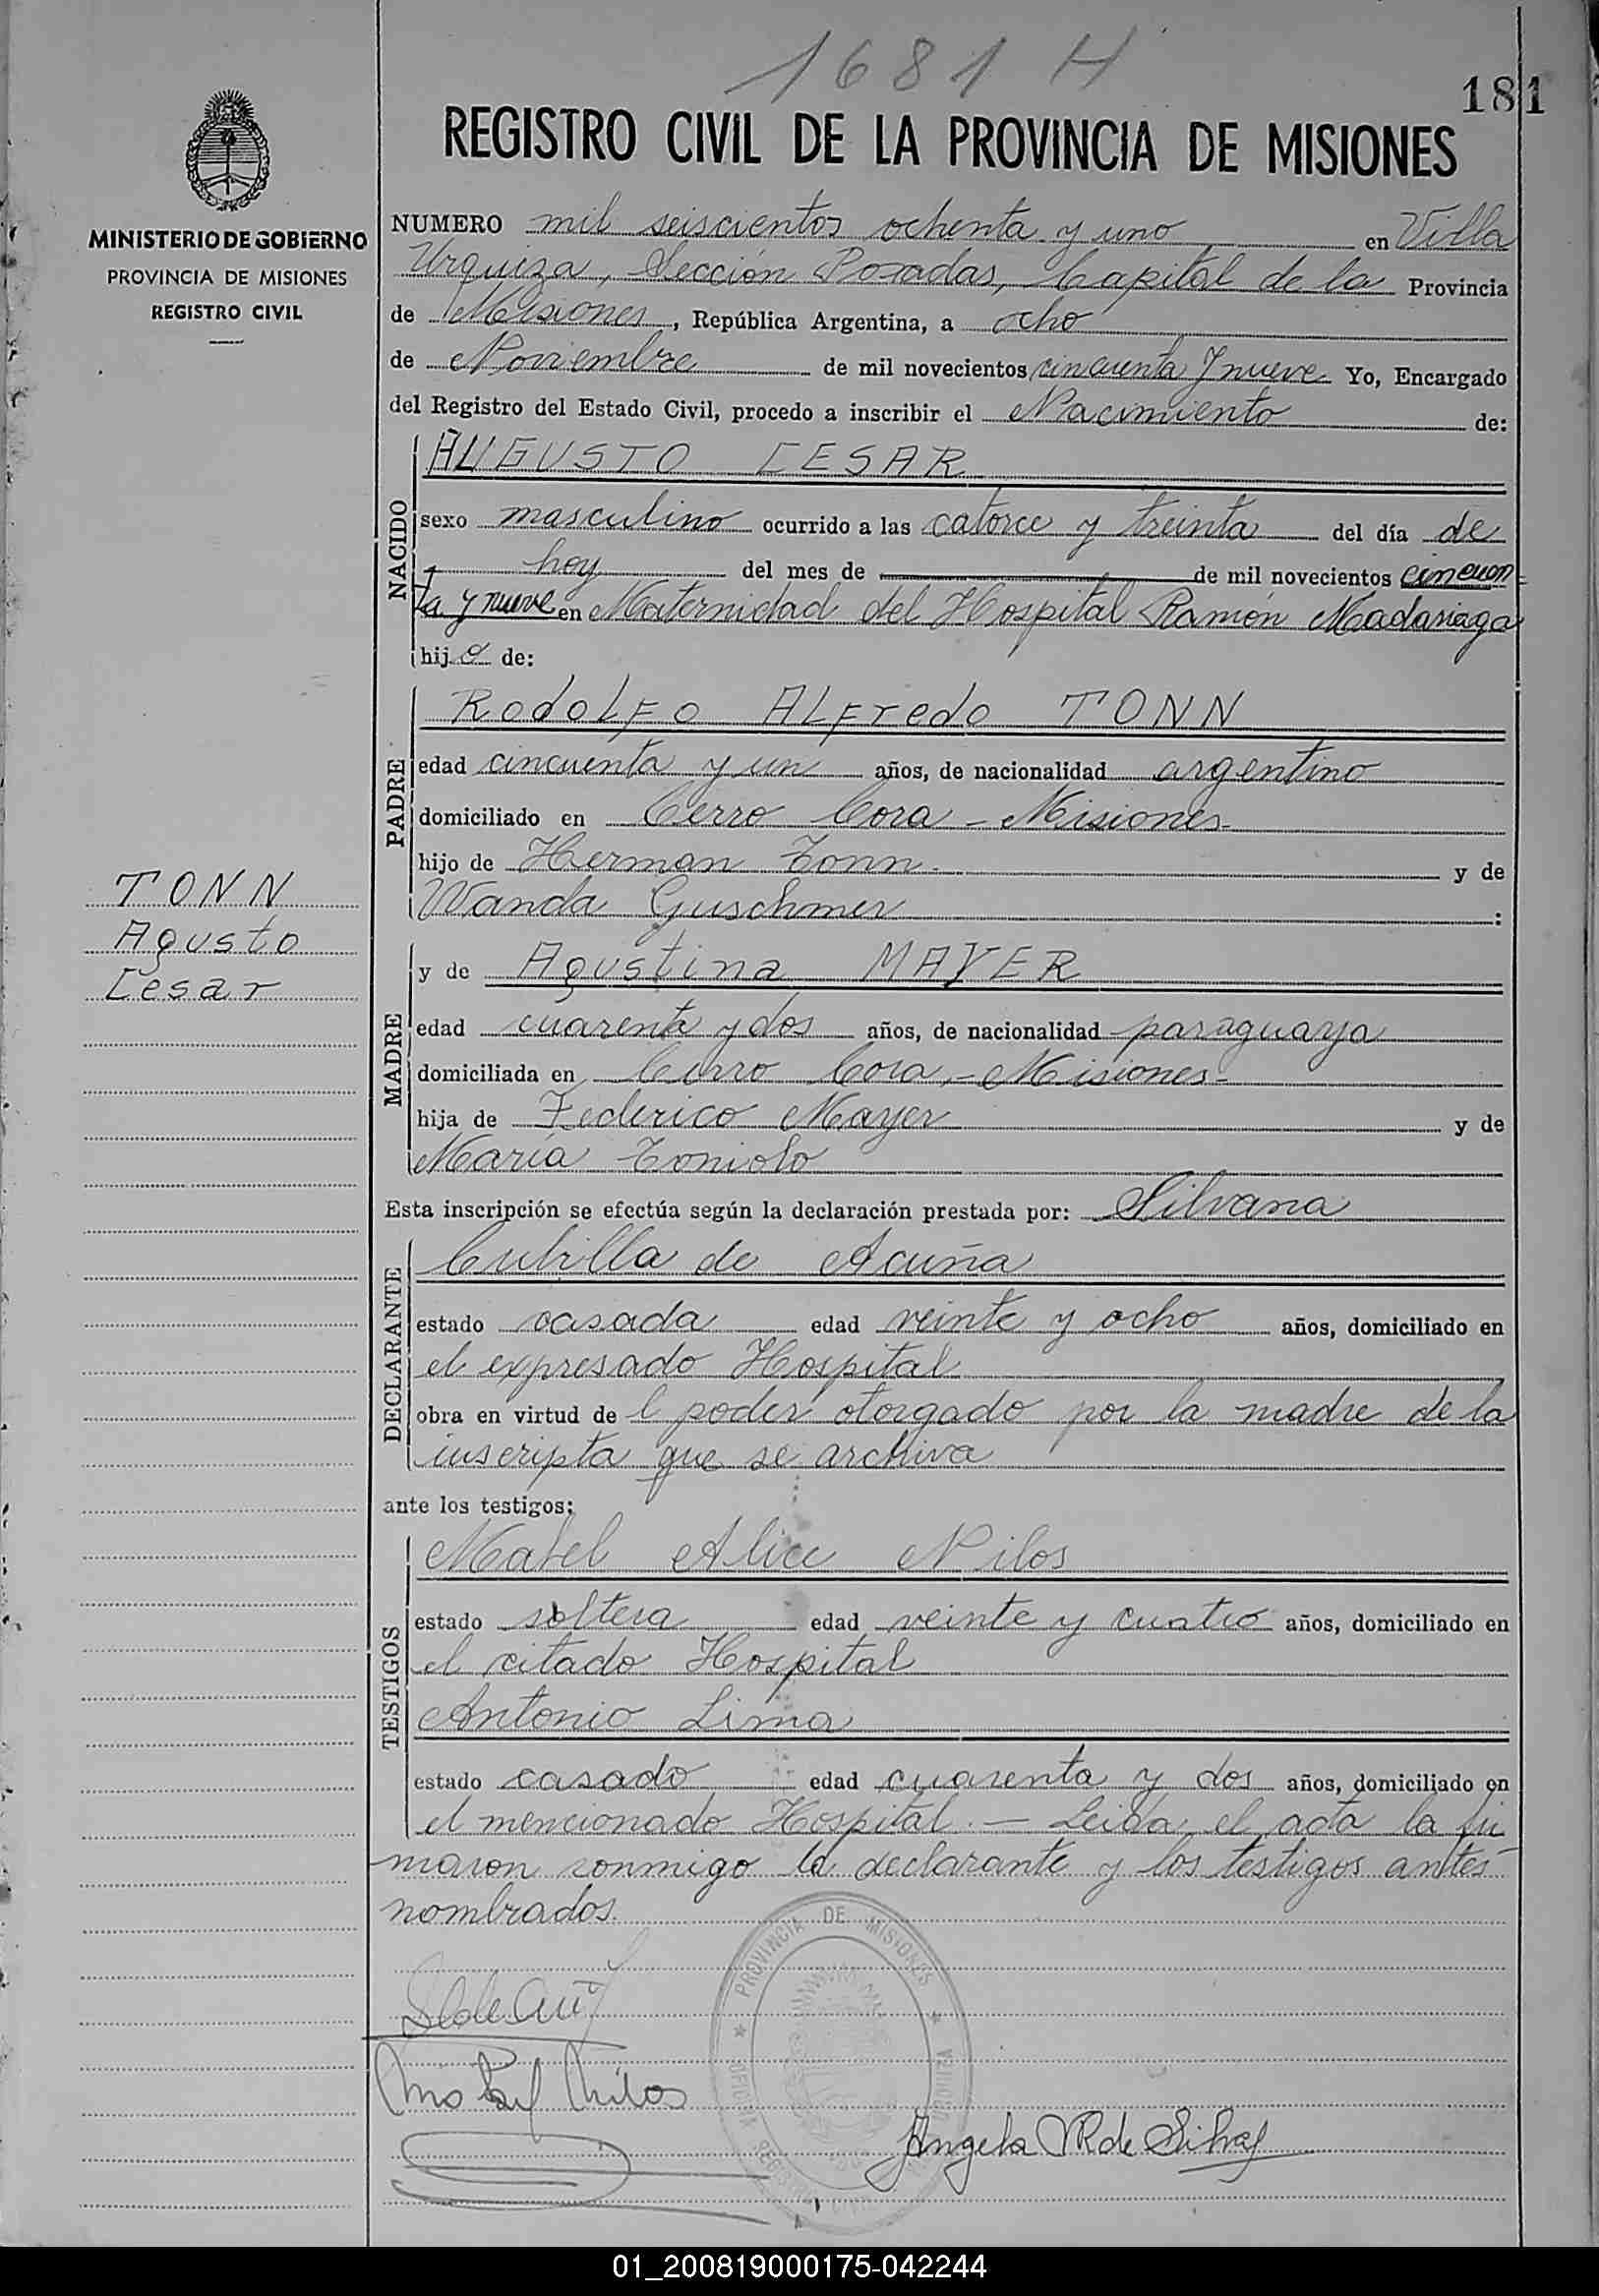 1681 H
181
REGISTRO CIVIL DE LA PROVINCIA DE MISIONES
MINISTERIO DE GOBIERNO
PROVINCIA DE MISIONES
REGISTRO CIVIL
NUMERO mil seiscientos ochenta y uno en Villa
Urquiza, Sección Posadas, Capital de la Provincia
de Misiones, República Argentina, a ocho
de Noviembre de mil novecientos cincuenta y nueve Yo, Encargado
del Registro del Estado Civil, procedo a inscribir el Nacimiento de:
NACIDO
AUGUSTO CESAR
sexo masculino ocurrido a las catorce y treinta del día de
hoy del mes de de mil novecientos cincuen
ta y nueve en Maternidad del Hospital Ramón Madariaga
hijo de:
PADRE
Rodolfo Alfredo TONN
edad cincuenta y un años, de nacionalidad argentino
domiciliado en Cerro Cora - Misiones-
hijo de Herman Tonn y de
Wanda Guschmer :
TONN
Agusto
Cesar
MADRE
y de Agustina MAYER
edad cuarenta y dos años, de nacionalidad paraguaya
domiciliada en Cerro Cora, - Misiones-
hija de Federico Mayer y de
María Toniolo
Esta inscripción se efectúa según la declaración prestada por: Silvana
DECLARANTE
Cubilla de Acuña
estado casada edad veinte y ocho años, domiciliado en
el expresado Hospital
obra en virtud del poder otorgado por la madre de la
inscripta que se archiva
ante los testigos:
TESTIGOS
Mabel Alice Nilos
estado soltera edad veinte y cuatro años, domiciliado en
el citado Hospital
Antonio Lima
estado casado edad cuarenta y dos años, domiciliado en
el mencionado Hospital. - Leida el acta la fir
maron conmigo la declarante y los testigos antes
nombrados.
PROVINCIA DE MISIONES
Angela R de Silva
01_200819000175-042244